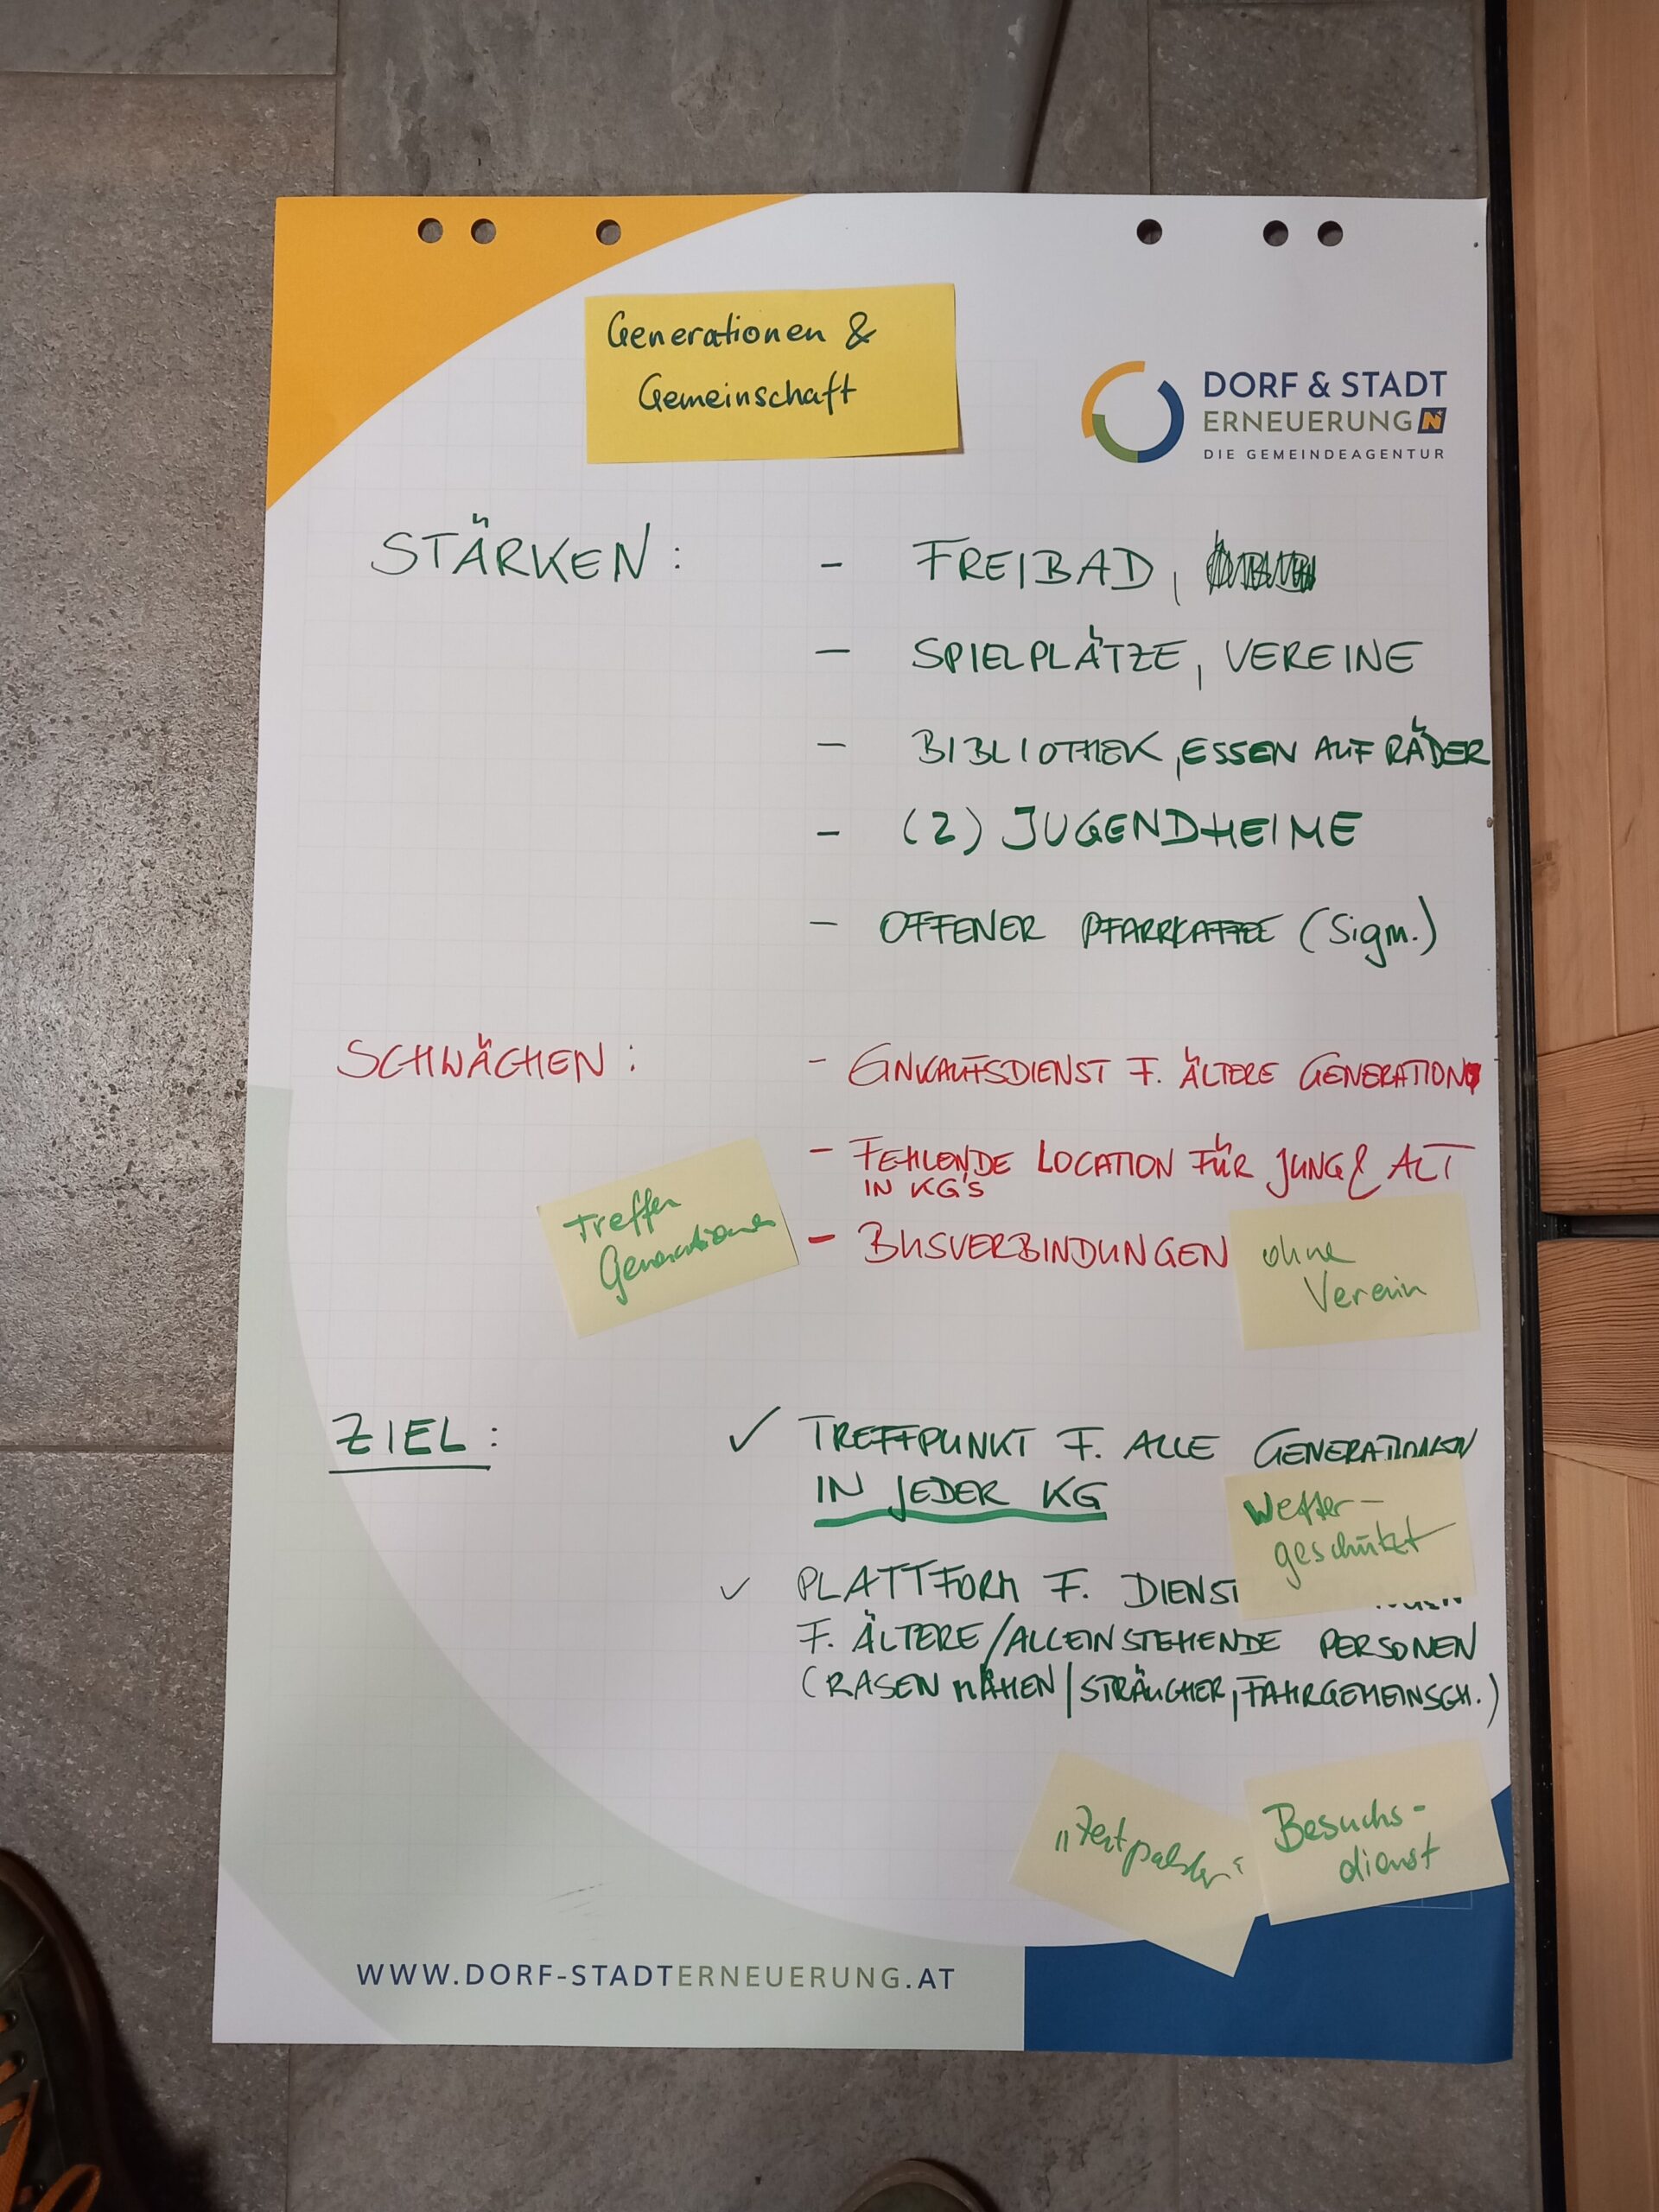 Generationen &
Gemeinschaft
DORF & STADT
ERNEUERUNG N
DIE GEMEINDEAGENTUR
STÄRKEN :
- FREIBAD,
- SPIELPLÄTZE, VEREINE
- BIBLIOTHEK, ESSEN AUF RÄDER
- (2) JUGENDHEIME
- OFFENER PFARRKAFFEE (Sigm.)
SCHWÄCHEN :
- EINKAUFSDIENST F. ÄLTERE GENERATION
- FEHLENDE LOCATION FÜR JUNG & ALT
IN KG'S
Treffen
Generationen
- BUSVERBINDUNGEN
ohne
Verein
ZIEL :
✓ TREFFPUNKT F. ALLE GENERATIONEN
IN JEDER KG
Wetter-
geschützt
✓ PLATTFORM F. DIENST
F. ÄLTERE/ALLEINSTEHENDE PERSONEN
(RASEN MÄHEN/STRÄUCHER, FAHRGEMEINSCH.)
Besuchs-
dienst
WWW.DORF-STADTERNEUERUNG.AT